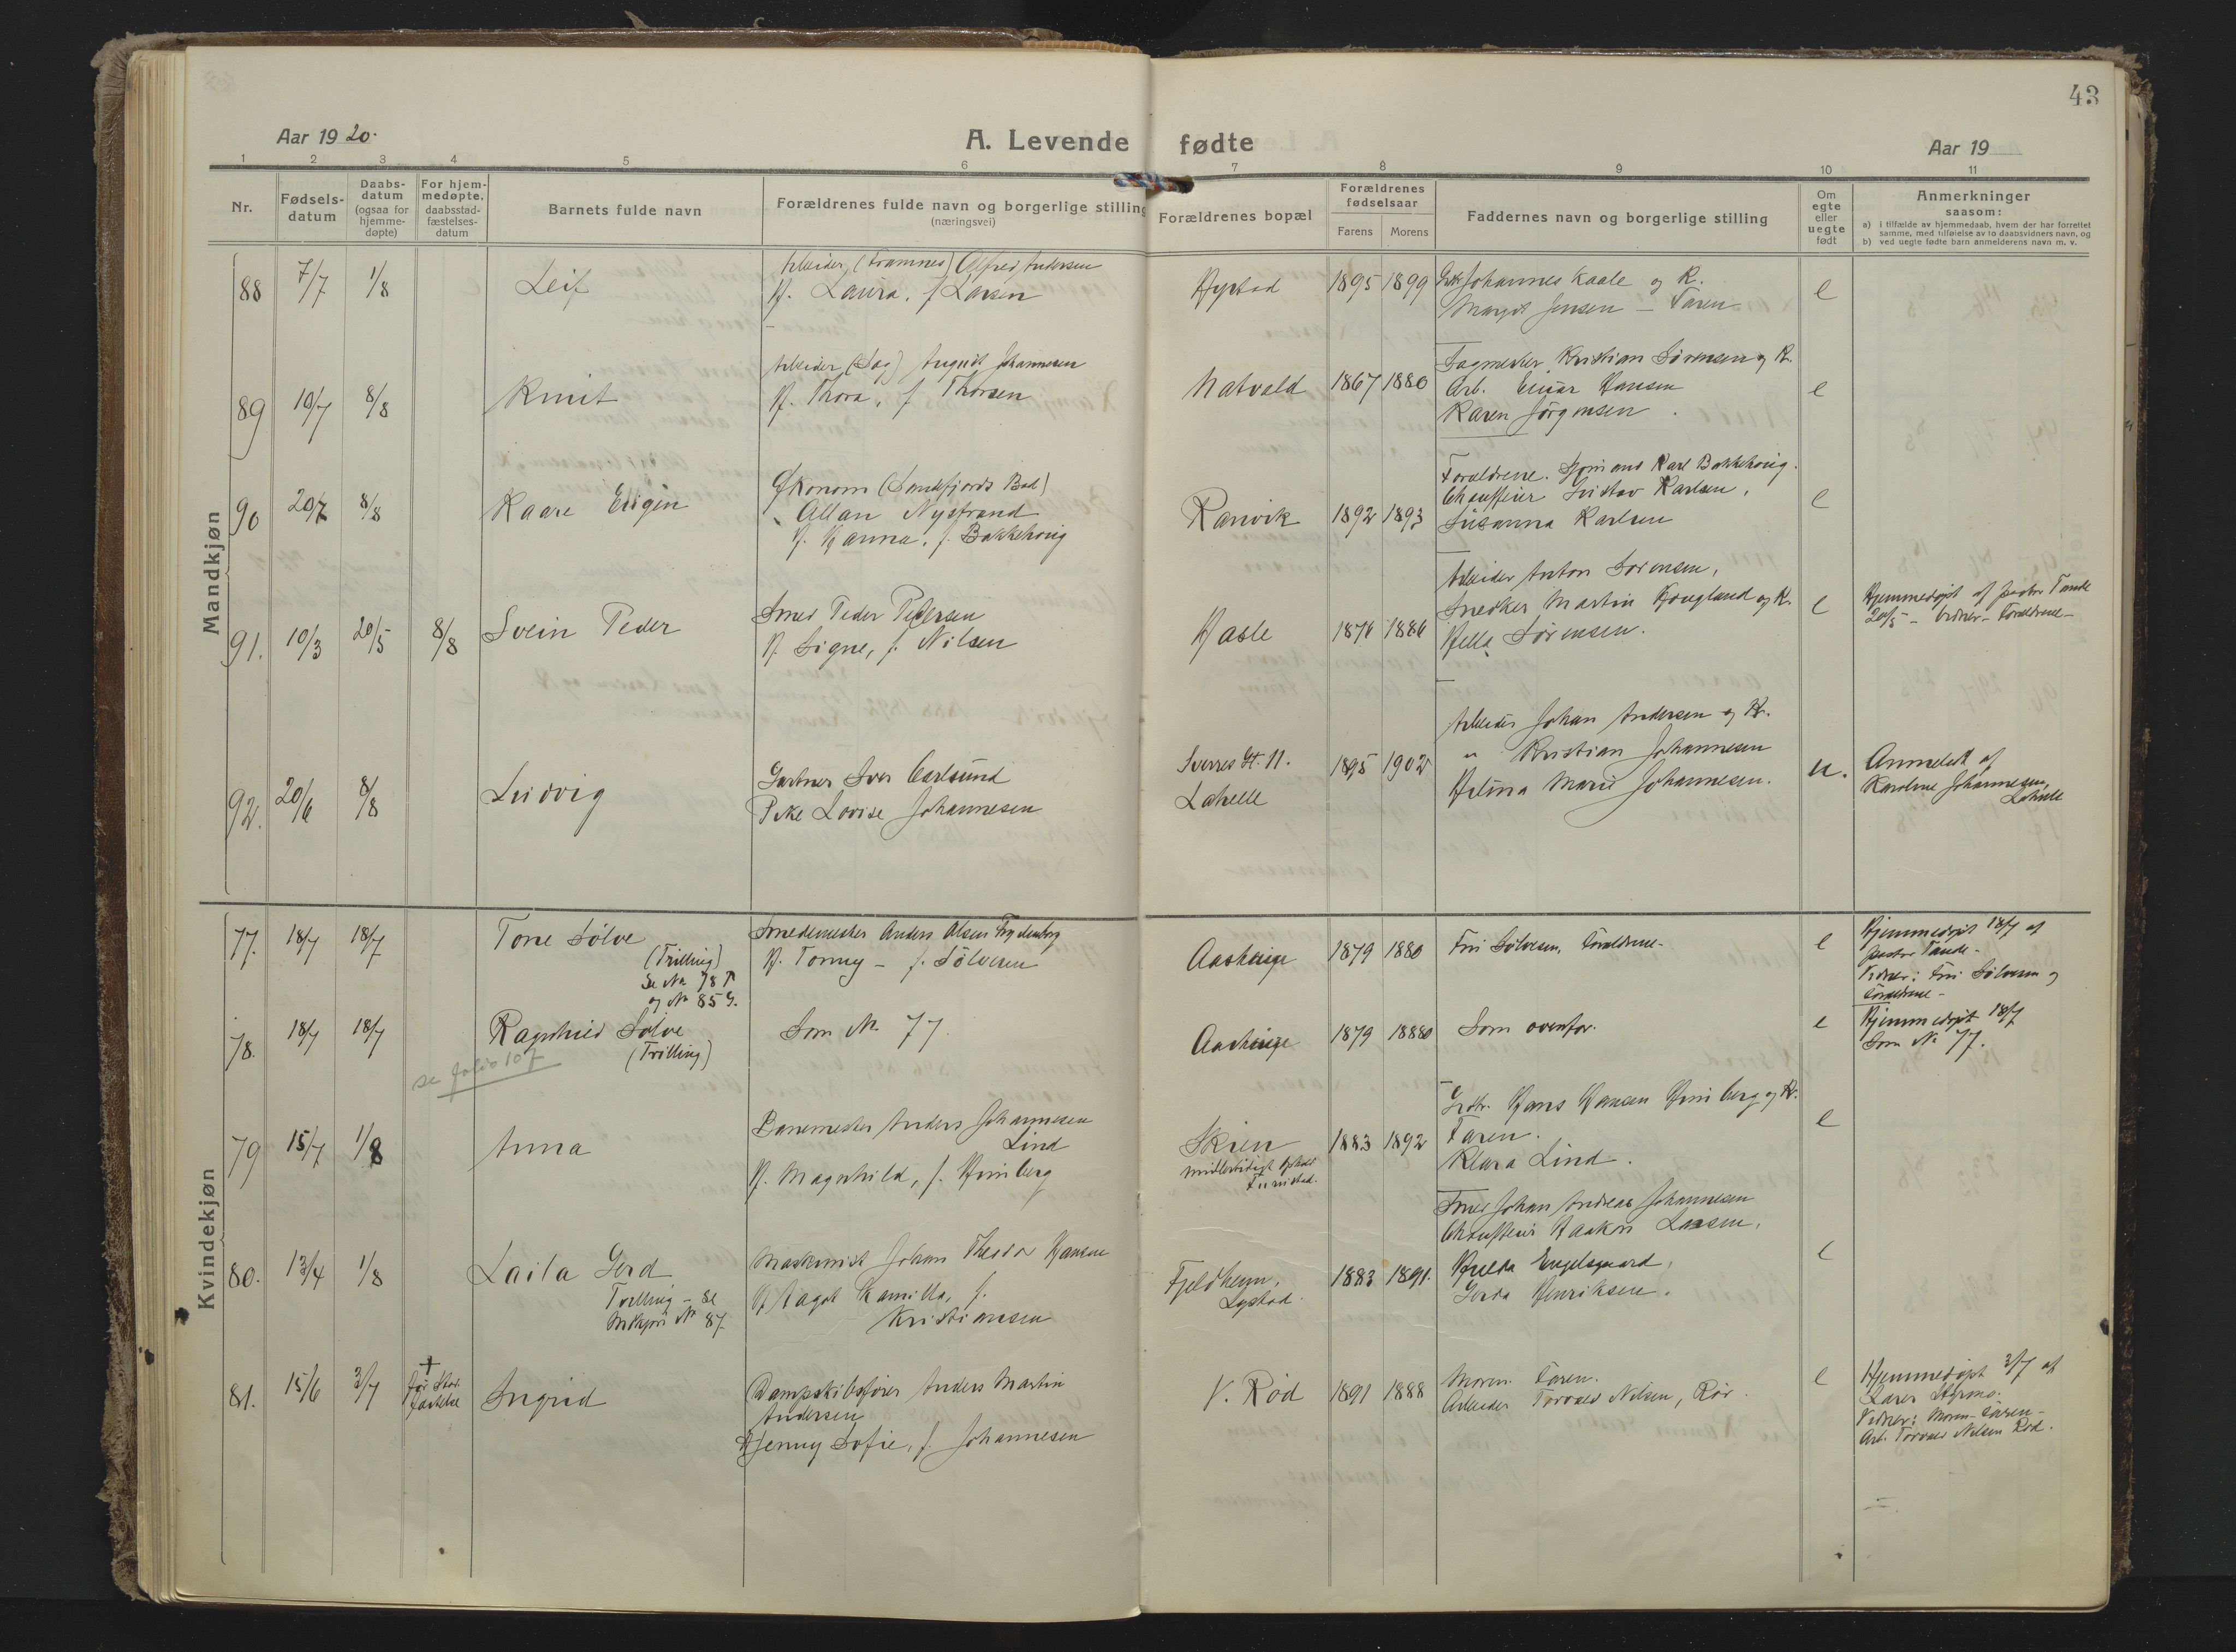 43
Aar 1920.
A. Levende fødte
Aar 19
1 2 3 4 5 6 7 8 9 10 11
Nr.
Fødsels-
datum
Daabs-
datum
(ogsaa for
hjemme-
døpte)
For hjem-
medøpte,
daabsstad-
fæstelses-
datum
Barnets fulde navn
Forældrenes fulde navn og borgerlige stilling
(næringsvei)
Forældrenes bopæl
Forældrenes
fødselsaar
Farens Morens
Faddernes navn og borgerlige stilling
Om
egte
eller
uegte
født
Anmerkninger
saasom:
a) i tilfælde av hjemmedaab, hvem der har forrettet
samme, med tilføielse av to daabsvidners navn, og
b) ved uegte fødte barn anmelderens navn m. v.
Mandkjøn
88 7/7 1/8 Leif
Arbeider (Framnes) Alfred Andersen
H. Laura, f. Larsen
1895 1899
Johannes Kaale og K.
Margit Jensen – Faren
e
89 10/7 8/8 Knut
Arbeider (Sag) August Johannesen
H. Thora, f. Thorsen
Natvald 1867 1880
Sagmester Kristian Sørensen og K.
Arb. Einar Hansen
Karen Jørgensen.
e
90 20/7 8/8 Kaare Eugén
Økonom (Sandefjords Bad)
Allan Nystrand
H. Hanna, f. Bakkehaug
Ranvik 1892 1893
Forældrene. Sjømand Karl Bakkehaug.
Chauffeur Gustav Karlsen,
Susanna Karlsen
e
91. 10/3 20/5 8/8 Svein Peder
Smed Peder Pedersen
H. Signe, f. Nilsen
Hasle 1886
Arbeider Anton Sørensen,
Snedker Martin Hougland og K.
Hella Sørensen.
e
Hjemmedøpt af pastor Tande
20/5 – Vidner – Forældrene –
92. 20/6 8/8 Ludvig
Gartner Iver Carlsund
Pike Lovise Johannesen
Sverres Gt. 11.
Lahelle
1895 1902
Arbeider Johan Andersen og K.
" Kristian Johannesen
Helina Marie Johannesen.
u.
Anmeldt af
Karoline Johannesen,
Lahelle
Kvindekjøn
77. 18/7 18/7 Tone Sølve
(Trilling)
Se No 78
og No 85 G.
Smedemester Anders Olsen Frydenborg
H. Tonny – f. Sølvesen
Aashauge 1879 1880
Fru Sølvesen, Forældrene –
e
Hjemmedøpt 18/7 af
pastor Tande –
Vidner: Fru Sølvesen og
Forældrene –
78. 18/7 18/7 Ragnhild Sølve
(Trilling)
se folio 107
Som No 77
Aashauge 1879 1880
Som ovenfor.
e
Hjemmedøpt 18/7
Som No 77.
79 15/7 1/8 Anna
Banemester Anders Johannesen
Lind
H. Magnhild, f. Himberg
Skien
midlertidigt Ophold
1883 1892
Grdbr. Hans Hansen Himberg og K.
Faren.
Klara Lind.
e
80. 13/4 1/8 Laila Gerd
Tvilling – se
Mkjøn No 87.
Maskinist Johan Theodor Hansen
H. Aagot Kamilla, f.
Kristiansen
Fjeldheim,
1883 1891.
Smed Johan Andreas Johannesen
Chauffeur Haakon Larsen,
Hulda Engelsgaard,
Gerda Henriksen.
e
81. 15/6 3/7 +
før Stad.
fæstelse
Ingrid
Dampskibsfører Anders Martin
Andersen
H. Jenny Sofie, f. Johannesen
V. Rød 1891 1888
Moren. Faren.
Arbeider Torvald Nilsen, Rød.
e
Hjemmedøpt 3/7 af
Lærer
Vidner: Moren – Faren –
Arb. Torvald Nilsen Rød.